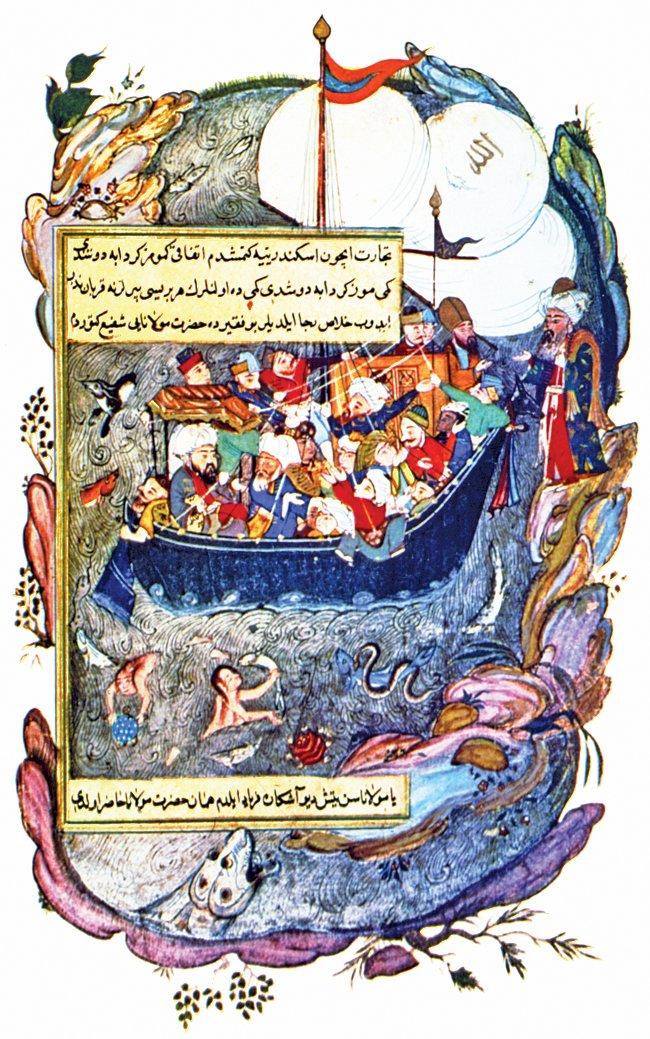 الله
تجارت ایچون اسکندریّیه کتمشدم اتفاقی کومز کردابه دوشدی
کمی موز کردابه دوشدی کمی ده اولنلرك هربریسی بیرلرنه قربان نذر
ایدوب خلاص رجا ایلدیلر بو فقیر ده حضرت مولانایی شفیع کتوردم
یا مولانا سن یتش دیو آشکان فریاد ایلدم همان حضرت مولانا حاضر اولدی